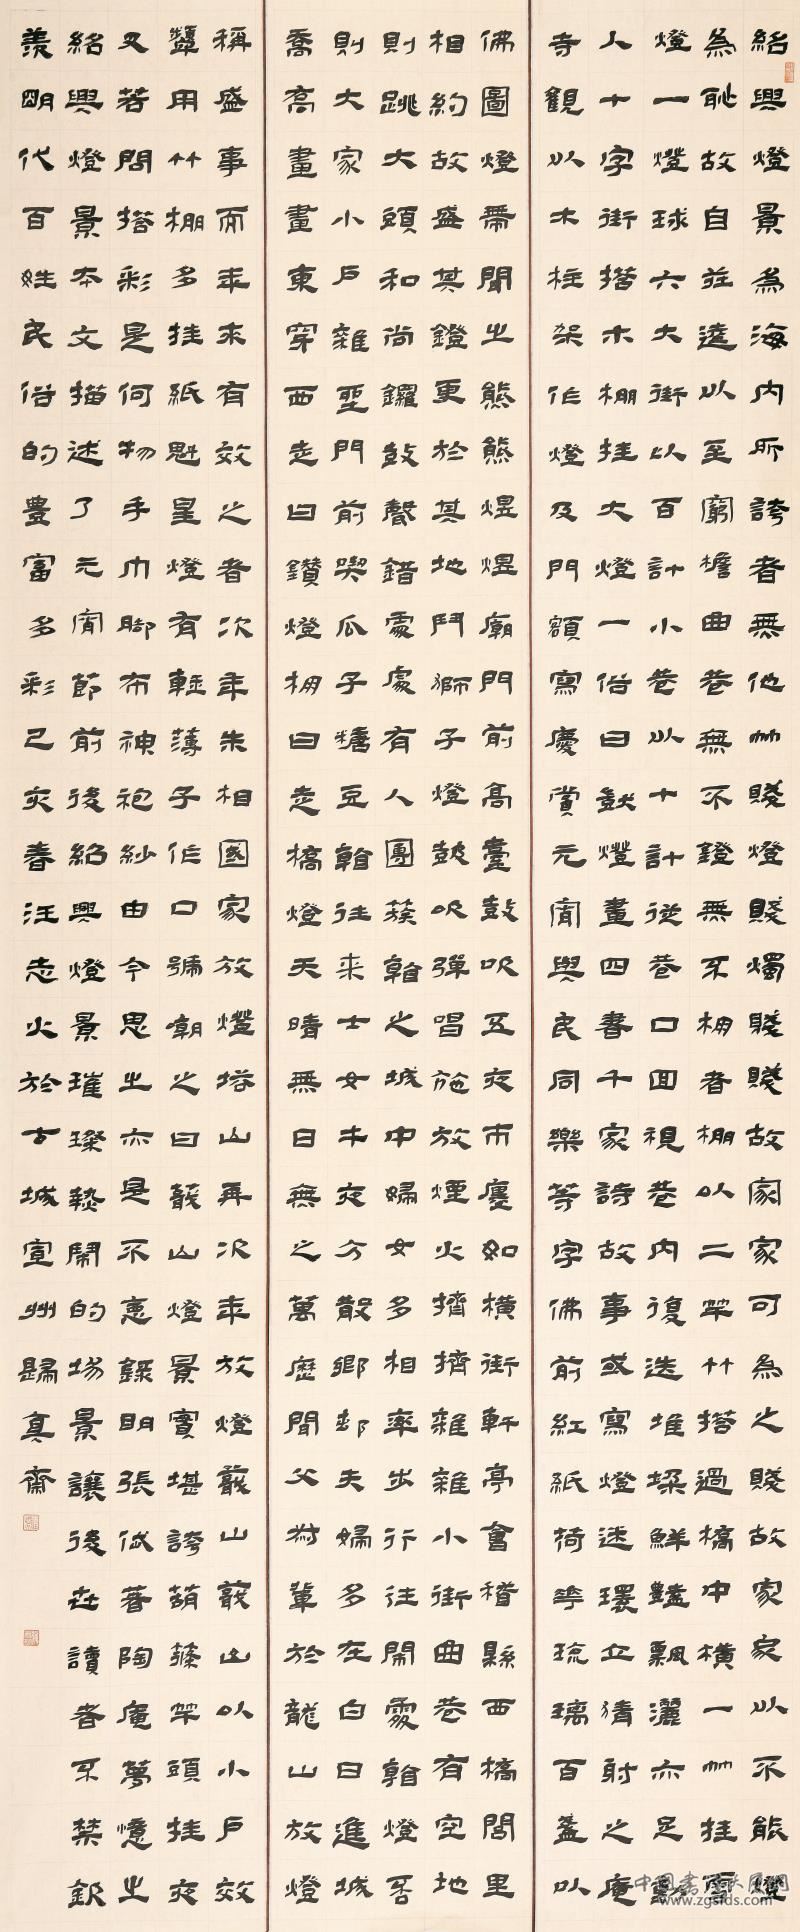 紹興燈景為海內所誇者無他竹賤燈賤燭賤賤故家家可為之賤故家家以不能燈
為恥故自莊逵以至窮檐曲巷無不鐙無不棚者棚以二竿竹搭過橋中橫一竹挂雪
燈一燈球六大街以百計小巷以十計從巷口回視巷內復迭堆垛鮮豔飄灑亦足動
人十字街搭木棚挂大燈一俗曰獃燈畫四書千家詩故事或寫燈迷環立猜射之庵
寺觀以木柱架作燈及門額寫慶賞元宵與民同樂等字佛前紅紙荷花琉璃百盞以
佛圖燈帶間之熊熊煜煜廟門前高臺鼓吹五夜市廛如橫街軒亭會稽縣西橋閭里
相約故盛其鐙更於其地鬥獅子燈鼓吹彈唱施放煙火擠擠雜雜小街曲巷有空地
則跳大頭和尚鑼鼓聲錯處處有人團簇看之城中婦女多相率步行往鬧處看燈否
則大家小戶雜坐門前喫瓜子糖豆看往來士女午夜方散鄉村夫婦多在白日進城
喬高畫畫東穿西走曰鑽燈棚曰走橋燈天晴無日無之萬曆間父叔輩於龍山放燈
稱盛事而年來有效之者次年朱相國家放燈塔山再次年放燈蕺山蕺山以小戶效
顰用竹棚多挂紙魁星燈有輕薄子作口號嘲之曰蕺山燈景實堪誇葫蘆竿頭挂夜
叉若問搭彩是何物手巾腳布神袍紗由今思之亦是不惡錄明張岱著陶庵夢憶之
紹興燈景本文描述了元宵節前後紹興燈景璀璨熱鬧的場景讓後世讀者不禁欽
羨明代百姓民俗的豊富多彩己亥春汪志火於古城宣州歸真齋
www.zgsfds.com